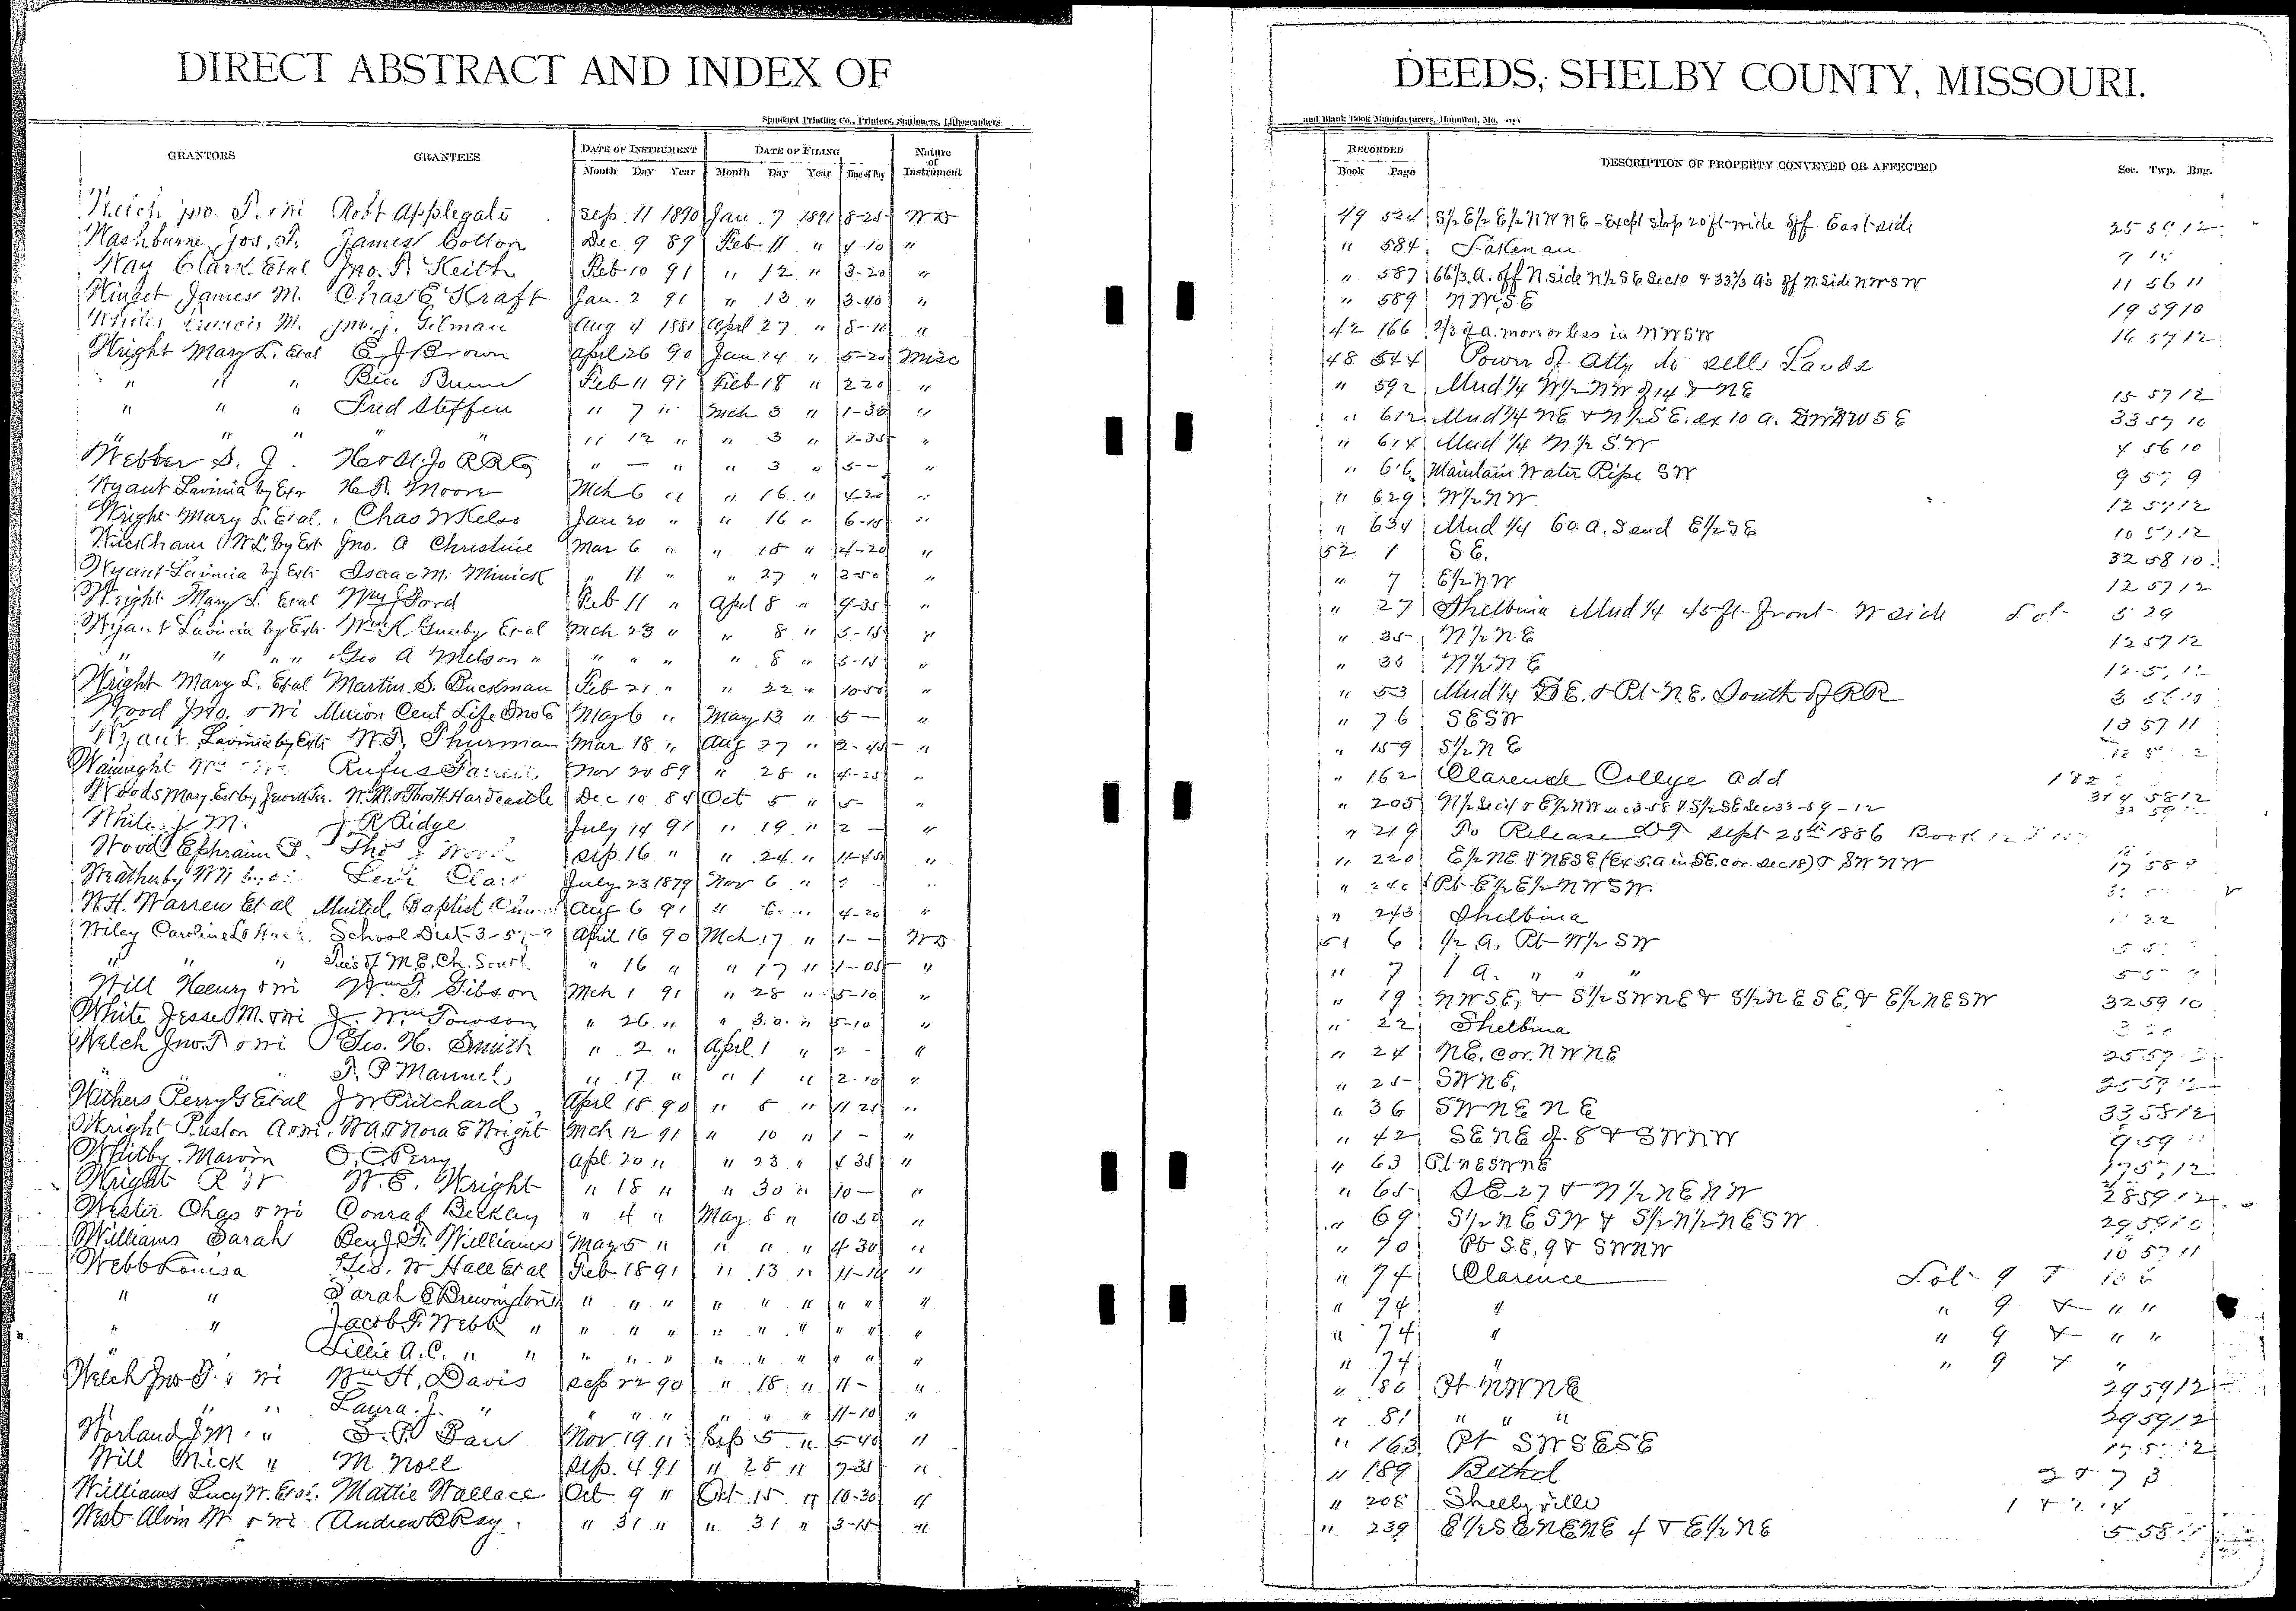 DIRECT ABSTRACT AND INDEX OF DEEDS, SHELBY COUNTY, MISSOURI.
Standard Printing Co., Printers, Stationers, Lithographers and Blank Book Manufacturers, Hannibal, Mo.
GRANTORS GRANTEES DATE OF INSTRUMENT DATE OF FILING Nature of Instrument RECORDED DESCRIPTION OF PROPERTY CONVEYED OR AFFECTED Sec. Twp. Rng.
Month Day Year Month Day Year Time of Day Book Page
Jno. T. & wi Robt Applegate Sep. 11 1890 Jan. 7 1891 8-25 WD 49 524 S½ E½ E½ NWNE - Except strip 20 ft wide off East side 25 12
Washburne, Jos. T. James Cotton Dec 9 89 Feb 11 " 4-10 " " 584
Way Clark Etal Jno. T. Keith Feb 10 91 " 12 " 3-20 " " 587 66⅔ A. off N. side N½ SE Sec 10 & 33⅓ A's off N. side NWSW 11 56 11
James M. Chas E Kraft Jan. 2 91 " 13 " 3-40 " " 589 NW, SE 19 59 10
Francis M. Jno. J. Gilman Aug 4 1881 April 27 " 8-10 " 42 166 a. more or less in NWSW 16 57 12
Wright Mary L. Etal E J Brown April 26 90 Jan 14 " 5-20 Misc 48 544 Power of Atty to sell Lands
" " " Ben Feb 11 91 Feb 18 " 2 20 " " 592 Und ¼ W½ NW of 14 & NE 15 57 12
" " " Fred Steffen " 7 " Mch 3 " 1-30 " " 612 Und ¼ NE & N½ SE. ex 10 a. SE 33 57 10
" " " " " 12 " " 3 " 1-35 " " 614 Und ¼ N½ SW 4 56 10
Webber S. J. H & St. Jo RR Co " — " " 3 " 5 — " " 616 Maintain Water Pipe SW 9 57 9
Wyant Lavinia by Exr H. T. Moore Mch 6 " " 16 " 4-20 " " 629 W½ NW 12 57 12
Wright Mary L. Etal. Chas W Kelso Jan 20 " " 16 " 6-15 " " 634 Und ¼ 60. a. S end E½ SE 10 57 12
Wickham W L. by Ext Jno. A Christine Mar 6 " " 18 " 4-20 " 52 1 SE. 32 58 10
Wyant Lavinia by Extr Isaac M. Minick " 11 " " 27 " 3-50 " " 7 E½ NW 12 57 12
Wright Mary L. Etal Wm J Ford Feb 11 " April 8 " 9-35 " " 27 Shelbina Und ¼ 45 ft front W side Lot 5 29
Wyant Lavinia by Extr Wm K. Gunby Etal Mch 23 " " 8 " 5-15 " " 35 N½ NE 12 57 12
" " " " Geo A Melson " " " " " 8 " 5-15 " " 36 N½ NE
Wright Mary L. Etal Martin. S. Buckman Feb 21 " " 22 " 10 50 " " 53 Und ¼ SE. & Pt NE. South of RR 3 56 10
Wood Jno. & wi Union Cent Life Ins Co May 6 " May 13 " 5 — " " 76 SESW 13 57 11
Wyant Lavinia by Extr W. T. Thurman Mar 18 " Aug 27 " 2-45 " " 159 S½ NE
Wainright Rufus Farrell Nov 20 89 " 28 " 4-25 " " 162 Clarence College Add
Woods Mary. Est by W. M. & Thos H Hardcastle Dec 10 84 Oct 5 " 5- " " 205
White J. M. J. R Ridge July 14 91 " 19 " 2 — " " 219 To Release DT Sept 25th 1886 Book
Wood Ephraim Thos Wood Sep. 16 " " 24 " 11-45 " " 220 E½ NE & NESE (Ex 5. a in SE. cor. Sec 18) & SWNW 17 58 9
Weatherby Levi July 23 1879 Nov 6 " " Pt E½ E½ NWSW.
W. H. Warren Et al United Baptist Aug 6 91 " 6 " 4-20 " " 243 Shelbina 22
Wiley Caroline School Dist 3-57-9 April 16 90 Mch 17 " 1 - - WD 51 6 ½ A. Pt W½ SW
" " " M. E. Ch. South " 16 " " 17 " 1-05 " " 7 1 A. " " "
Will Henry & wi Wm T. Gibson Mch 1 91 " 28 " 5-10 " " 19 NWSE, & S½ SWNE & S½ NESE, & E½ NESW 32 59 10
White Jesse M. & wi J. Wm Towson " 26 " " 30 " 5-10 " " 22 Shelbina
Welch Jno. T & wi Geo. H. Smith " 2 " April 1 " 2 - " " 24 NE. cor. NWNE 25 59 12
T. P Mannel " 17 " " 1 " 2-10 " " 25 SWNE, 25 59 12
Withers Perry G Etal J W Pritchard April 18 90 " 8 " 11 25 " " 36 SWNENE 33 58 12
Wright Preston A & wi. W A. & Nora E Wright Mch 12 91 " 10 " 1 - " " 42 SENE of 8 & SWNW 9 59 11
Whitby Marvin O. C Perry Apl. 20 " " 23 " 4 35 " " 63 Pt NESWNE 17 57 12
Wright R W W. E. Wright " 18 " " 30 " 10 — " " 65 SE 27 & N½ NENW 28 59 12
Wester Chas & wi Conrad Beckley " 4 " May. 8 " 10-50 " " 69 S½ NESW & S½ N½ NESW 29 59 10
Williams Sarah Benj. F. Williams May 5 " " " " 4 30 " " 70 Pt SE, 9 & SWNW 10 57 11
Webb Louisa Geo. W Hall Etal Feb 18 91 " 13 " 11-10 " " 74 Clarence Lot 9 & 10 6
" " Sarah E Brewington " " " " " " " " " " 74 " " 9 & " "
" " Jacob F. Webb " " " " " " " " " " " 74 " " 9 & " "
Lillie A. C. " " " " " " " " " " " " 74 " " 9 & "
Welch Jno T. & wi Wm H. Davis Sep 22 90 " 18 " 11 - " " 80 Pt NWNE 29 59 12
" " Laura. J. " " " " " " " 11-10 " " 81 " " " 29 59 12
Worland J M " Nov. 19 " Sep 5 " 5-40 " " 163 Pt SWSESE
Will Mick " M Noll Sep. 4 91 " 28 " 7-35 " " 189 Bethel 2 & 7 3
Williams Lucy W. Etal. Mattie Wallace Oct 9 " Oct 15 " 10-30 " " 208 Shelbyville 1 & 2 14
West Alvin W & wi Andrew B Ray " 31 " " 31 " 3-15 " " 239 E½ SENENE 4 & E½ NE 5 58 11